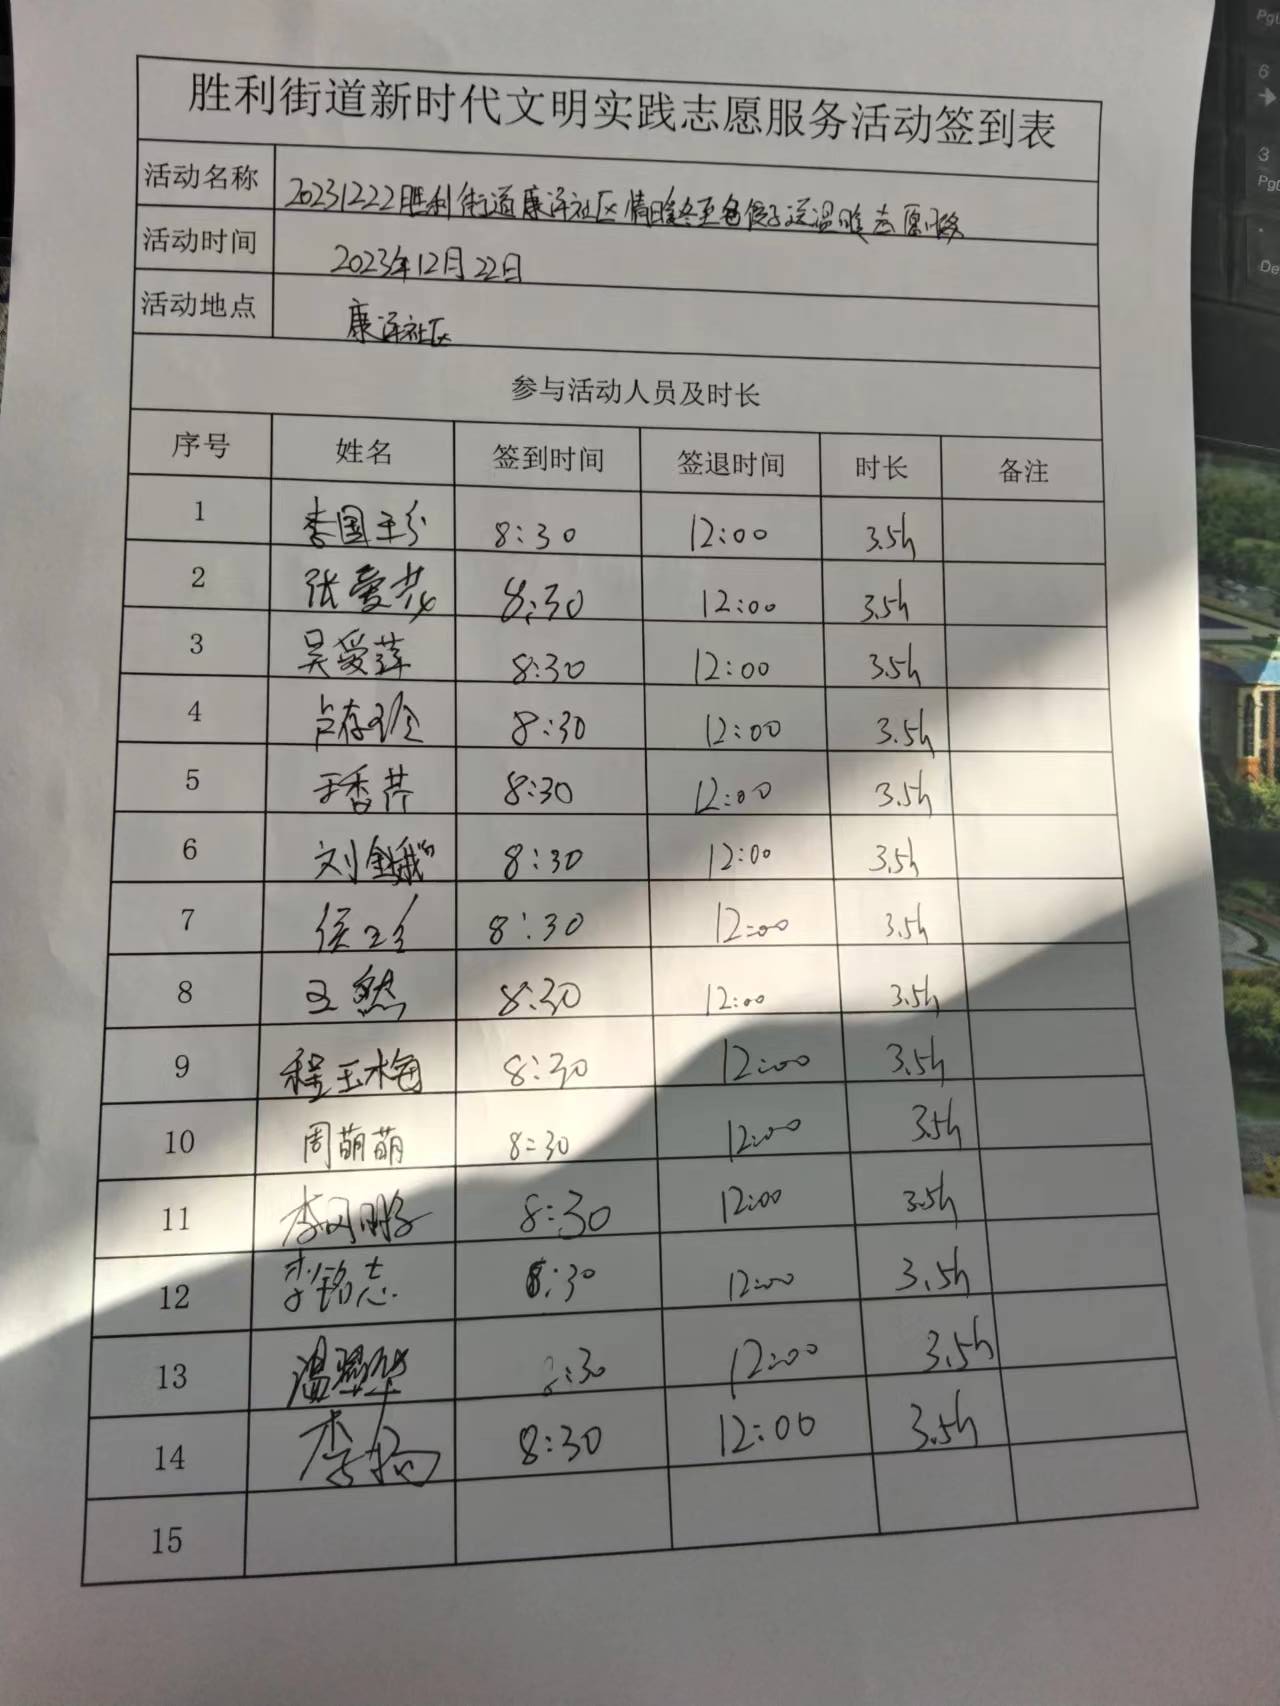 胜利街道新时代文明实践志愿服务活动签到表
活动名称 20231222胜利街道康泽社区情暖冬至包饺子送温暖志愿服务
活动时间 2023年12月22日
活动地点 康泽社区
参与活动人员及时长
序号 姓名 签到时间 签退时间 时长 备注
1 李国玉分 8:30 12:00 3.5h
2 张爱 8:30 12:00 3.5h
3 吴爱莲 8:30 12:00 3.5h
4 卢存珍 8:30 12:00 3.5h
5 于香芹 8:30 12:00 3.5h
6 刘金娥 8:30 12:00 3.5h
7 侯 8:30 12:00 3.5h
8 王然 8:30 12:00 3.5h
9 程玉梅 8:30 12:00 3.5h
10 周萌萌 8:30 12:00 3.5h
11 李 8:30 12:00 3.5h
12 李铭志 8:30 12:00 3.5h
13 温 8:30 12:00 3.5h
14 李扬 8:30 12:00 3.5h
15
6
3